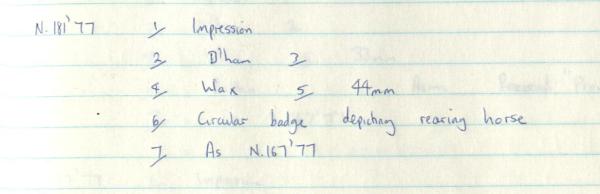 N.181'77 1/ Impression
2/ D'han 3/
4/ Wax 5/ 44mm
6/ Circular badge depicting rearing horse
7/ As N.167'77